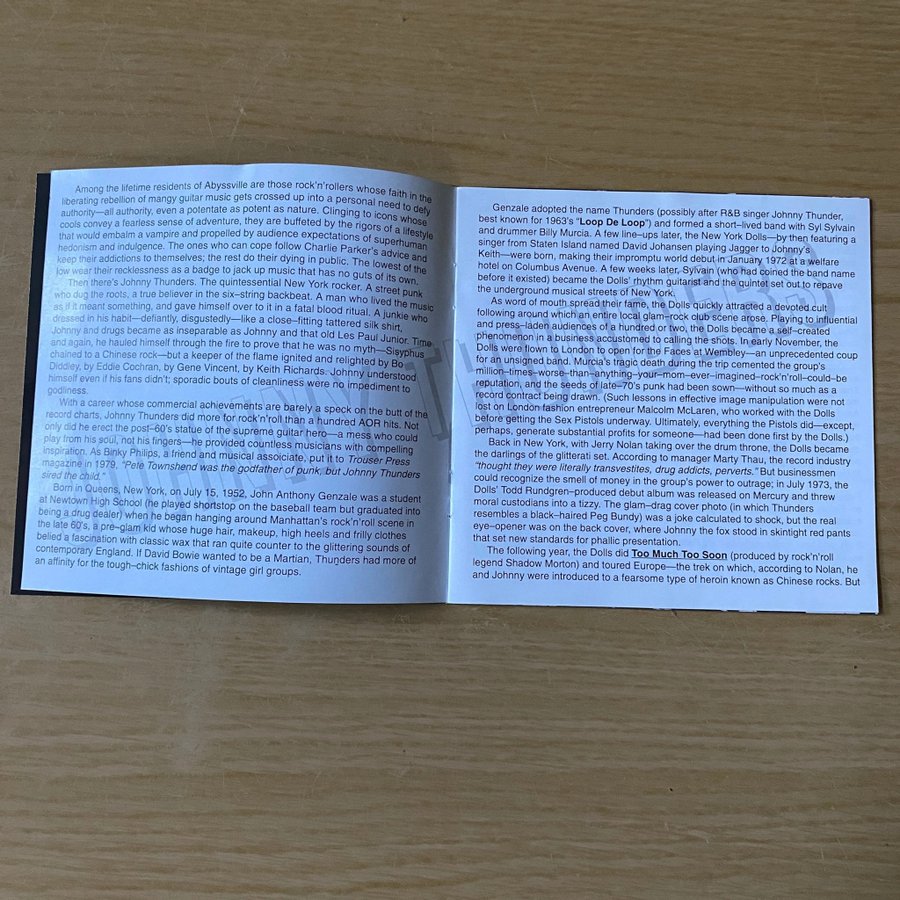 Among the lifetime residents of Abyssville are those rock'n'rollers whose faith in the
liberating rebellion of mangy guitar music gets crossed up into a personal need to defy
authority—all authority, even a potentate as potent as nature. Clinging to icons whose
cools convey a fearless sense of adventure, they are buffeted by the rigors of a lifestyle
that would embalm a vampire and propelled by audience expectations of superhuman
hedonism and indulgence. The ones who can cope follow Charlie Parker's advice and
keep their addictions to themselves; the rest do their dying in public. The lowest of the
low wear their recklessness as a badge to jack up music that has no guts of its own.
Then there's Johnny Thunders. The quintessential New York rocker. A street punk
who dug the roots, a true believer in the six–string backbeat. A man who lived the music
as if it meant something, and gave himself over to it in a fatal blood ritual. A junkie who
dressed in his habit—defiantly, disgustedly—like a close–fitting tattered silk shirt,
Johnny and drugs became as inseparable as Johnny and that old Les Paul Junior. Time
and again, he hauled himself through the fire to prove that he was no myth—Sisyphus
chained to a Chinese rock—but a keeper of the flame ignited and relighted by Bo
Diddley, by Eddie Cochran, by Gene Vincent, by Keith Richards. Johnny understood
himself even if his fans didn't; sporadic bouts of cleanliness were no impediment to
godliness.
With a career whose commercial achievements are barely a speck on the butt of the
record charts, Johnny Thunders did more for rock'n'roll than a hundred AOR hits. Not
only did he erect the post–60's statue of the supreme guitar hero—a mess who could
play from his soul, not his fingers—he provided countless musicians with compelling
inspiration. As Binky Philips, a friend and musical associate, put it to Trouser Press
magazine in 1979, "Pete Townshend was the godfather of punk, but Johnny Thunders
sired the child."
Born in Queens, New York, on July 15, 1952, John Anthony Genzale was a student
at Newtown High School (he played shortstop on the baseball team but graduated into
being a drug dealer) when he began hanging around Manhattan's rock'n'roll scene in
the late 60's, a pre–glam kid whose huge hair, makeup, high heels and frilly clothes
belied a fascination with classic wax that ran quite counter to the glittering sounds of
contemporary England. If David Bowie wanted to be a Martian, Thunders had more of
an affinity for the tough–chick fashions of vintage girl groups.
JOHNNY THUNDERS
Genzale adopted the name Thunders (possibly after R&B singer Johnny Thunder,
best known for 1963's "Loop De Loop") and formed a short–lived band with Syl Sylvain
and drummer Billy Murcia. A few line–ups later, the New York Dolls—by then featuring a
singer from Staten Island named David Johansen playing Jagger to Johnny's
Keith—were born, making their impromptu world debut in January 1972 at a welfare
hotel on Columbus Avenue. A few weeks later, Sylvain (who had coined the band name
before it existed) became the Dolls' rhythm guitarist and the quintet set out to repave
the underground musical streets of New York.
As word of mouth spread their fame, the Dolls quickly attracted a devoted cult
following around which an actual glam–rock club scene arose. Playing to influential
and press–laden audiences of a hundred or two, the Dolls became a self–created
phenomenon with no business types calling the shots. In early November, the
Dolls were flown to London to open for the Faces at Wembley—an unprecedented coup
for an unsigned band. Murcia's tragic death during the trip cemented the group's
million–times–worse–than–anything–your–mom–ever–imagined–rock'n'roll–could–be
reputation, and the seeds of late–70's punk had been sown—without so much as a
record contract being drawn. (Such lessons in effective image manipulation were not
lost on London fashion entrepreneur Malcolm McLaren, who worked with the Dolls
before getting the Sex Pistols underway. Ultimately, everything the Pistols did—except,
perhaps, generate substantial profits for someone—had been done first by the Dolls.)
Back in New York, with Jerry Nolan taking over the drum throne, the Dolls became
the darlings of the glitterati set. According to manager Marty Thau, the record industry
"thought they were literally transvestites, drug addicts, perverts." But businessmen
could recognize the smell of money in the group's power to outrage; in July 1973, the
Dolls' Todd Rundgren–produced debut album was released on Mercury and threw
moral custodians into a tizzy. The glam–drag cover photo (in which Thunders
resembles a black–haired Peg Bundy) was a joke calculated to shock, but the real
eye–opener was on the back cover, where Johnny the fox stood in skintight red pants
that set new standards for phallic presentation.
The following year, the Dolls did Too Much Too Soon (produced by rock'n'roll
legend Shadow Morton) and toured Europe—the trek on which, according to Nolan, he
and Johnny were introduced to a fearsome type of heroin known as Chinese rocks. But